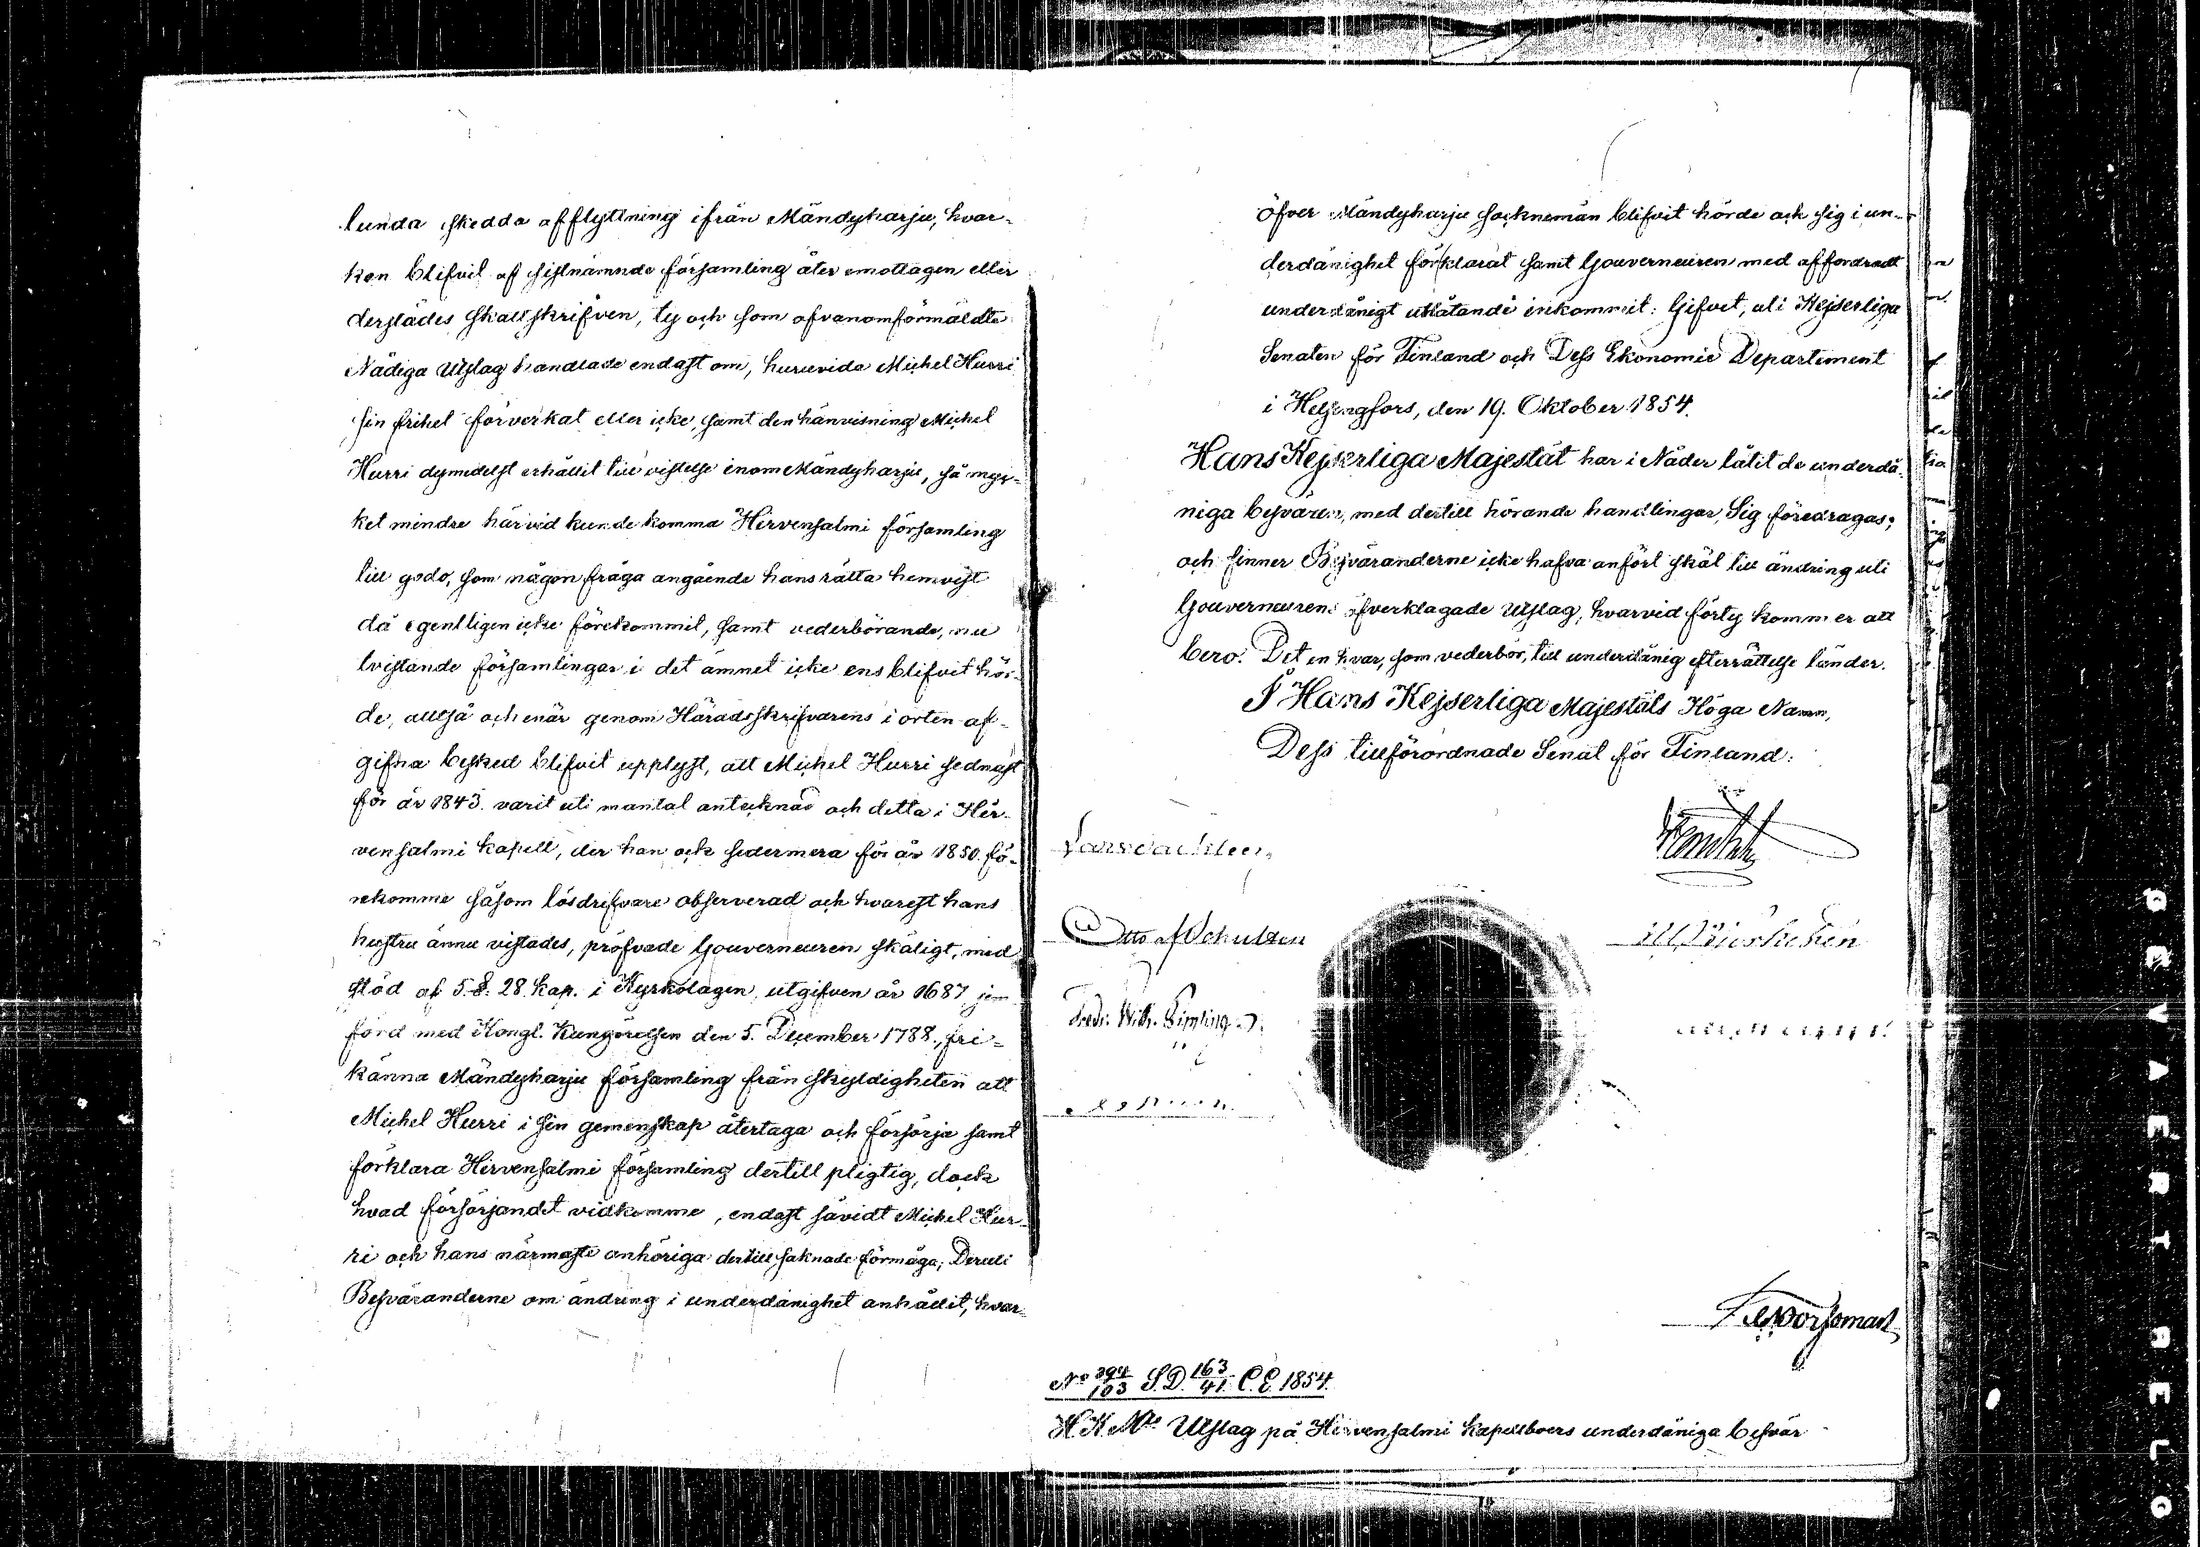 lunda skedda afflyttning ifrån Mändyharju, hvar-
ken blifvit af sistnämnde församling åter emottagen eller
derstädes skattskrifven, ty och som ofvanomförmäldte
Nådiga Utslag handlade endast om, huruvida Michel Hurri
sin frihet förverkat eller icke, samt den hänvisning Michel
Hurri dymedelst erhållit till vistelse inom Mändyharju, så myc-
ket mindre härvid kunde komma Hirvensalmi församling
till godo, som någon fråga angående hans rätta hemvist
då egentligen icke förekommit, samt vederbörande, nu
tvistande församlingar i det ämnet icke ens blifvit hör-
de, alltså och enär genom Häradsskrifvarens i orten af-
gifna besked blifvit upplyst, att Michel Hurri sednast
för år 1843. varit uti mantal antecknad och detta i Hir-
vensalmi kapell, der han ock sedermera för år 1850. fö-
rekomme såsom lösdrifvare observerad och hvarest hans
hustru ännu vistades, pröfvade Gouverneuren skäligt, med
stöd af 5. §. 28. Kap. i Kyrkolagen, utgifven år 1687 jem
förd med Kongl. Kungörelsen den 5. December 1788., fri-
känna Mändyharju församling från skyldigheten att
Michel Hurri i sin gemenskap återtaga och försörja samt
förklara Hirvensalmi församling dertill pligtig, dock
hvad försörjandet vidkomme, endast såvidt Michel Hur-
ri och hans närmaste anhöriga dertill saknade förmåga; Deruti
Besväranderne om ändring i underdånighet anhållit, hvar-
öfver Mändyharju socknemän blifvit hörde och sig i un-
derdånighet förklarat samt Gouverneuren med affordradt
underdånigt utlåtande inkommit: Gifvet, uti Kejserliga
Senaten för Finland och Dess Ekonomie Departement
i Helsingfors, den 19. Oktober 1854.
Hans Kejserliga Majestät har i Nåder låtit de underdå-
niga besvären, med dertill hörande handlingar, Sig föredragas;
och finner Besväranderne icke hafva anfört skäl till ändring uti
Gouverneurens öfverklagade Utslag, hvarvid förty kommer att
bero. Det en hvar, som vederbör, till underdånig efterrättelse länder.
I Hans Kejserliga Majestäts Höga Namn,
Dess tillförordnade Senat för Finland:
Otto af Schultén
Fredr. Wilh.
No 394/103 S.D. 163/41 C.E. 1854.
H.K.Mts Utslag på Hirvensalmi kapellboers underdåniga besvär
GEVAERT BELG